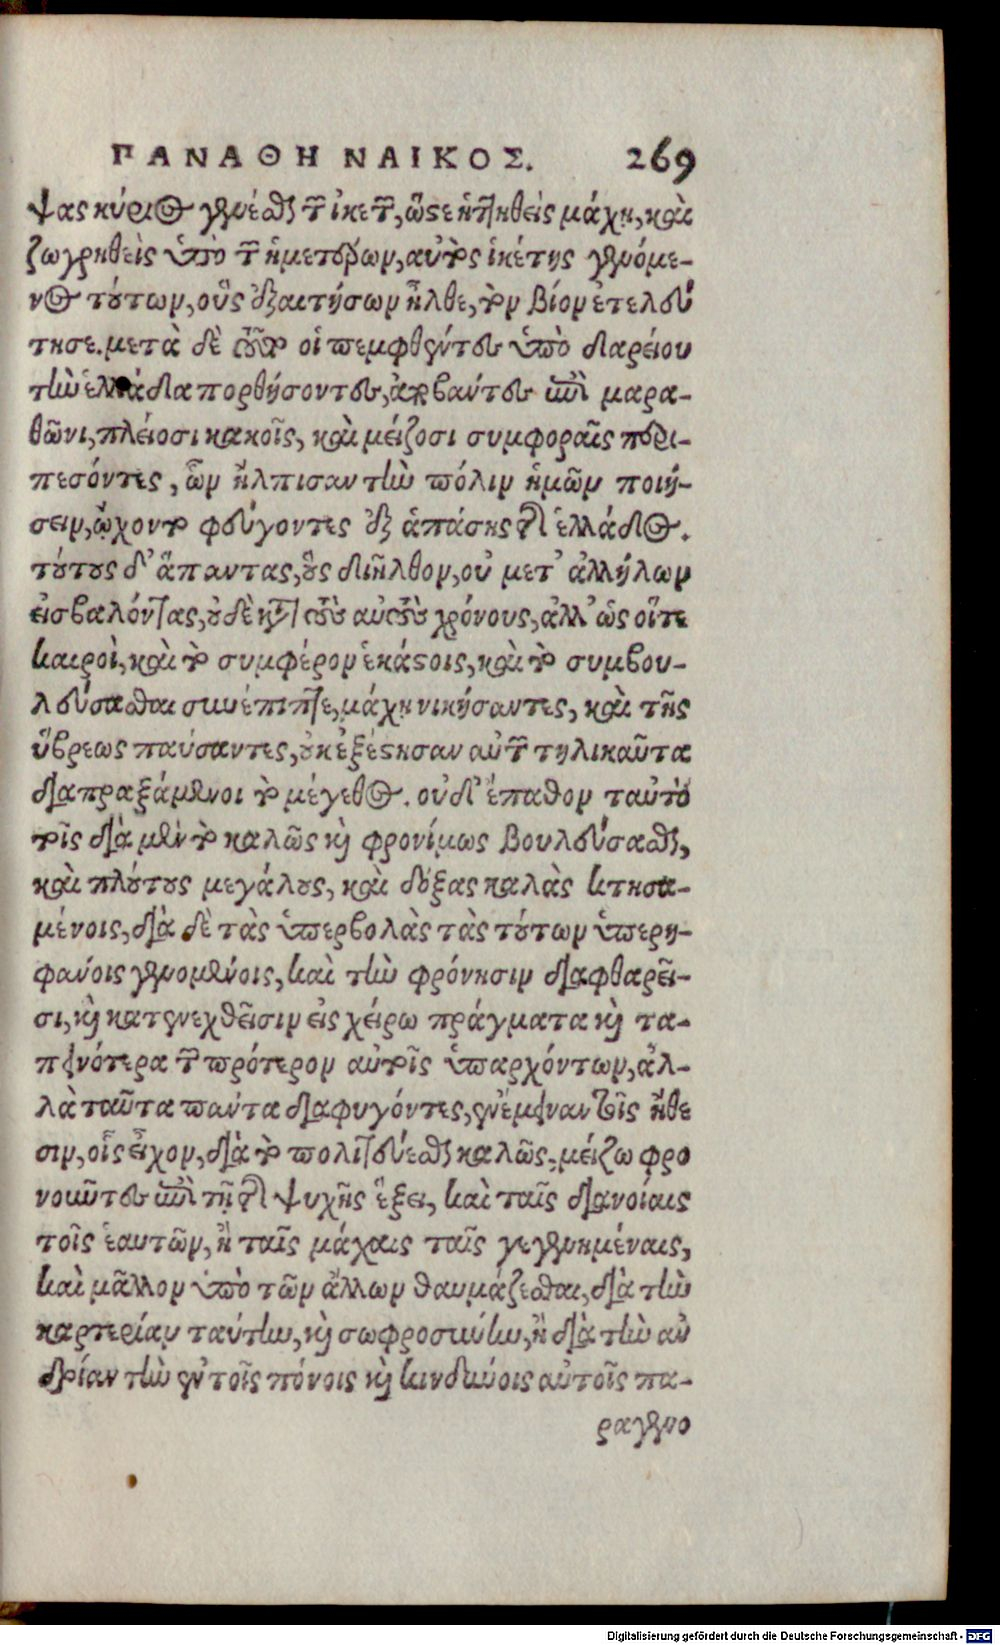 ΠΑΝΑΘΗΝΑΙΚΟΣ. 269
ψας κύριος γενέσθαι τῶν ἱκετῶν, ὥστε ἡττηθεὶς μάχῃ, καὶ
ζωγρηθεὶς ὑπὸ τῶν ἡμετέρων, αὐτὸς ἱκέτης γενόμε-
νος τούτων, οὓς ἐξαιτήσων ἦλθε, τὸν βίον ἐτελεύ
τησε. μετὰ δὲ τοῦτον οἱ πεμφθέντες ὑπὸ Δαρείου
τὴν ἑλλάδα πορθήσοντες, ἀποβάντες ἐπὶ μαρα-
θῶνι, πλείοσι κακοῖς, καὶ μείζοσι συμφοραῖς περι-
πεσόντες, ὧν ἤλπισαν τὴν πόλιν ἡμῶν ποιή-
σειν, ᾤχοντο φεύγοντες ἐξ ἁπάσης τῆς ἑλλάδος.
τούτους δ' ἅπαντας, οὓς διῆλθον, οὐ μετ' ἀλλήλων
εἰσβαλόντας, οὐδὲ κατὰ τοὺς αὐτοὺς χρόνους, ἀλλ' ὡς οἵτε
καιροὶ, καὶ τὸ συμφέρον ἑκάστοις, καὶ τὸ συμβου-
λεύσασθαι συνέπιπτε, μάχῃ νικήσαντες, καὶ τῆς
ὕβρεως παύσαντες, οὐκ ἐξέστησαν αὑτῶν τηλικαῦτα
διαπραξάμενοι τὸ μέγεθος. οὐδ' ἔπαθον ταὐτὸ
τοῖς διὰ μὲν τὸ καλῶς καὶ φρονίμως βουλεύσασθαι,
καὶ πλούτους μεγάλους, καὶ δόξας καλὰς κτησα-
μένοις, διὰ δὲ τὰς ὑπερβολὰς τὰς τούτων ὑπερη-
φάνοις γενομένοις, καὶ τὴν φρόνησιν διαφθαρεῖ-
σι, καὶ κατενεχθεῖσιν εἰς χείρω πράγματα καὶ τα-
πεινότερα τῶν πρότερον αὐτοῖς ὑπαρχόντων, ἀλ-
λὰ ταῦτα πάντα διαφυγόντες, ἐνέμειναν τοῖς ἤθε
σιν, οἷς εἶχον, διὰ τὸ πολιτεύεσθαι καλῶς, μείζω φρο
νοῦντες ἐπὶ τῇ τῆς ψυχῆς ἕξει, καὶ ταῖς διανοίαις
τοῖς ἑαυτῶν, ἢ ταῖς μάχαις ταῖς γεγενημέναις,
καὶ μᾶλλον ὑπὸ τῶν ἄλλων θαυμάζεσθαι, διὰ τὴν
καρτερίαν ταύτην, καὶ σωφροσύνην, ἢ διὰ τὴν ἀν
δρίαν τὴν ἐν τοῖς πόνοις καὶ κινδύνοις αὐτοῖς πα-
ραγενο
Digitalisierung gefördert durch die Deutsche Forschungsgemeinschaft - DFG